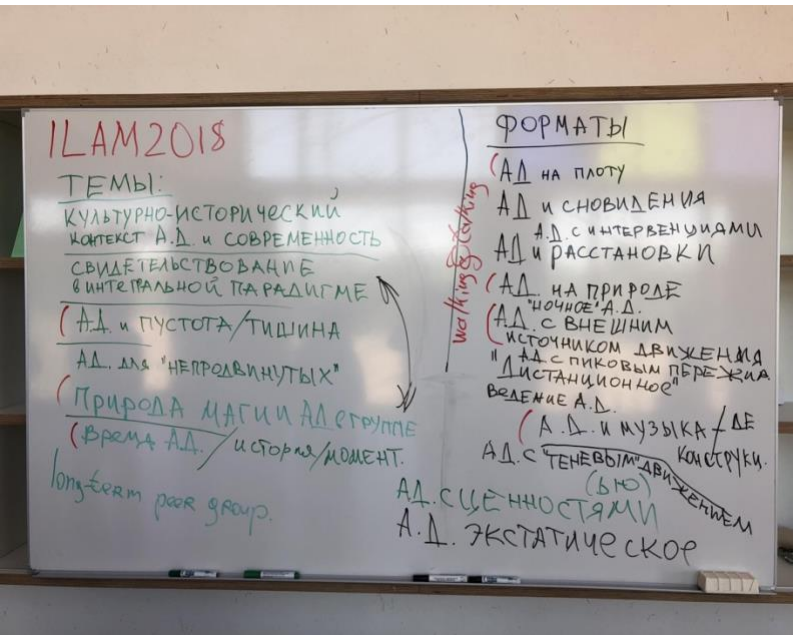 ILAM2018
ТЕМЫ:
КУЛЬТУРНО-ИСТОРИЧЕСКИЙ
КОНТЕКСТ А.Д. И СОВРЕМЕННОСТЬ
СВИДЕТЕЛЬСТВОВАНИЕ
В ИНТЕГРАЛЬНОЙ ПАРАДИГМЕ
(А.Д. и ПУСТОТА/ТИШИНА
АД. ДЛЯ "НЕПРОДВИНУТЫХ"
(ПРИРОДА МАГИИ АД В ГРУППЕ
(ВРЕМЯ АД. / ИСТОРИЯ/МОМЕНТ.
long-term peer group.
walking & talking
ФОРМАТЫ
(АД НА ПЛОТУ
АД И СНОВИДЕНИЯ
А.Д. С ИНТЕРВЕНЦИЯМИ
АД И РАССТАНОВКИ
(АД. НА ПРИРОДЕ
"НОЧНОЕ" А.Д.
(АД. С ВНЕШНИМ
ИСТОЧНИКОМ ДВИЖЕНИЯ
АД С ПИКОВЫМ ПЕРЕЖИВА
"ДИСТАНЦИОННОЕ"
ВЕДЕНИЕ А.Д.
(А.Д. И МУЗЫКА + ДЕ
КОНСТРУКЦ.
АД. С "ТЕНЕВЫМ" ДВИЖЕНИЕМ
АД. С ЦЕННОСТЯМИ
А.Д. ЭКСТАТИЧЕСКОЕ